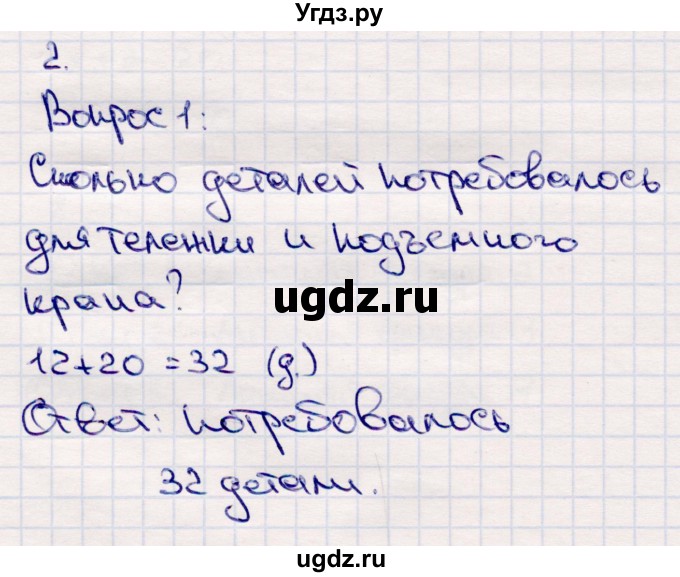 Угдз.ру
2.
Вопрос 1:
Сколько деталей потребовалось
для тележки и подъемного
крана?
ugdz.ru
12+20 = 32 (д.)
Ответ: потребовалось
32 детали.
ugdz.ru